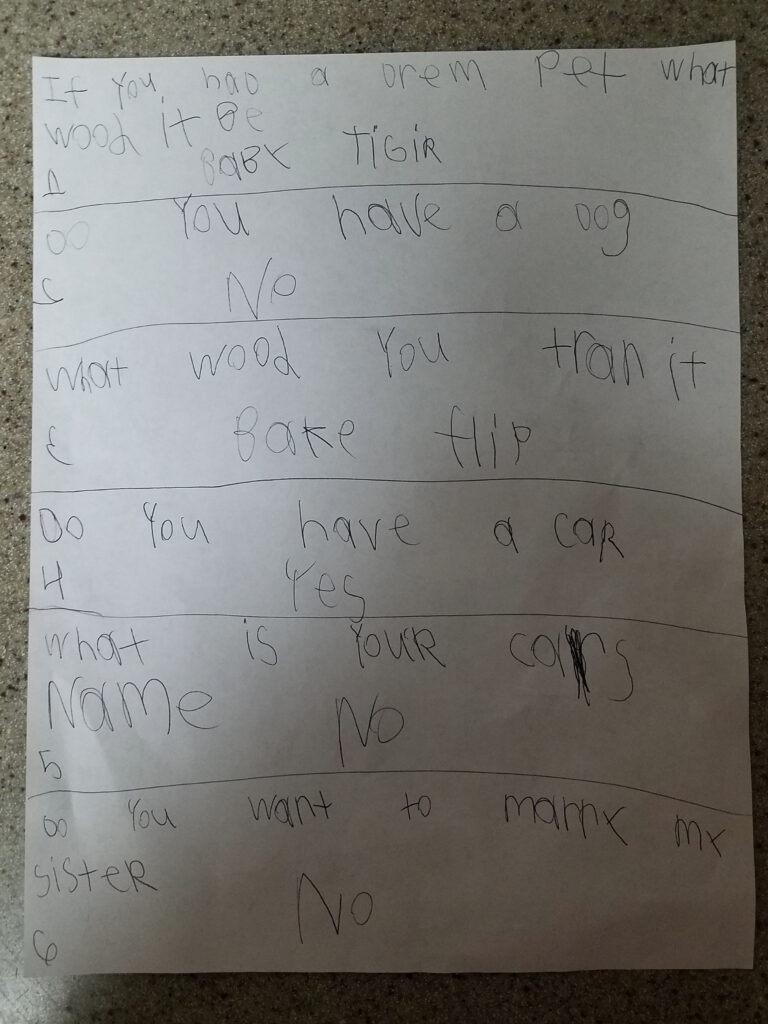 If You had a drem Pet what
wood it Be
1 BaBy TiGiR
Do You have a dog
2 No
what wood You tran it
3 Bake flip
Do You have a caR
4 Yes
what is YouR cars
Name No
5
Do You want to marry my
sisteR
No
6